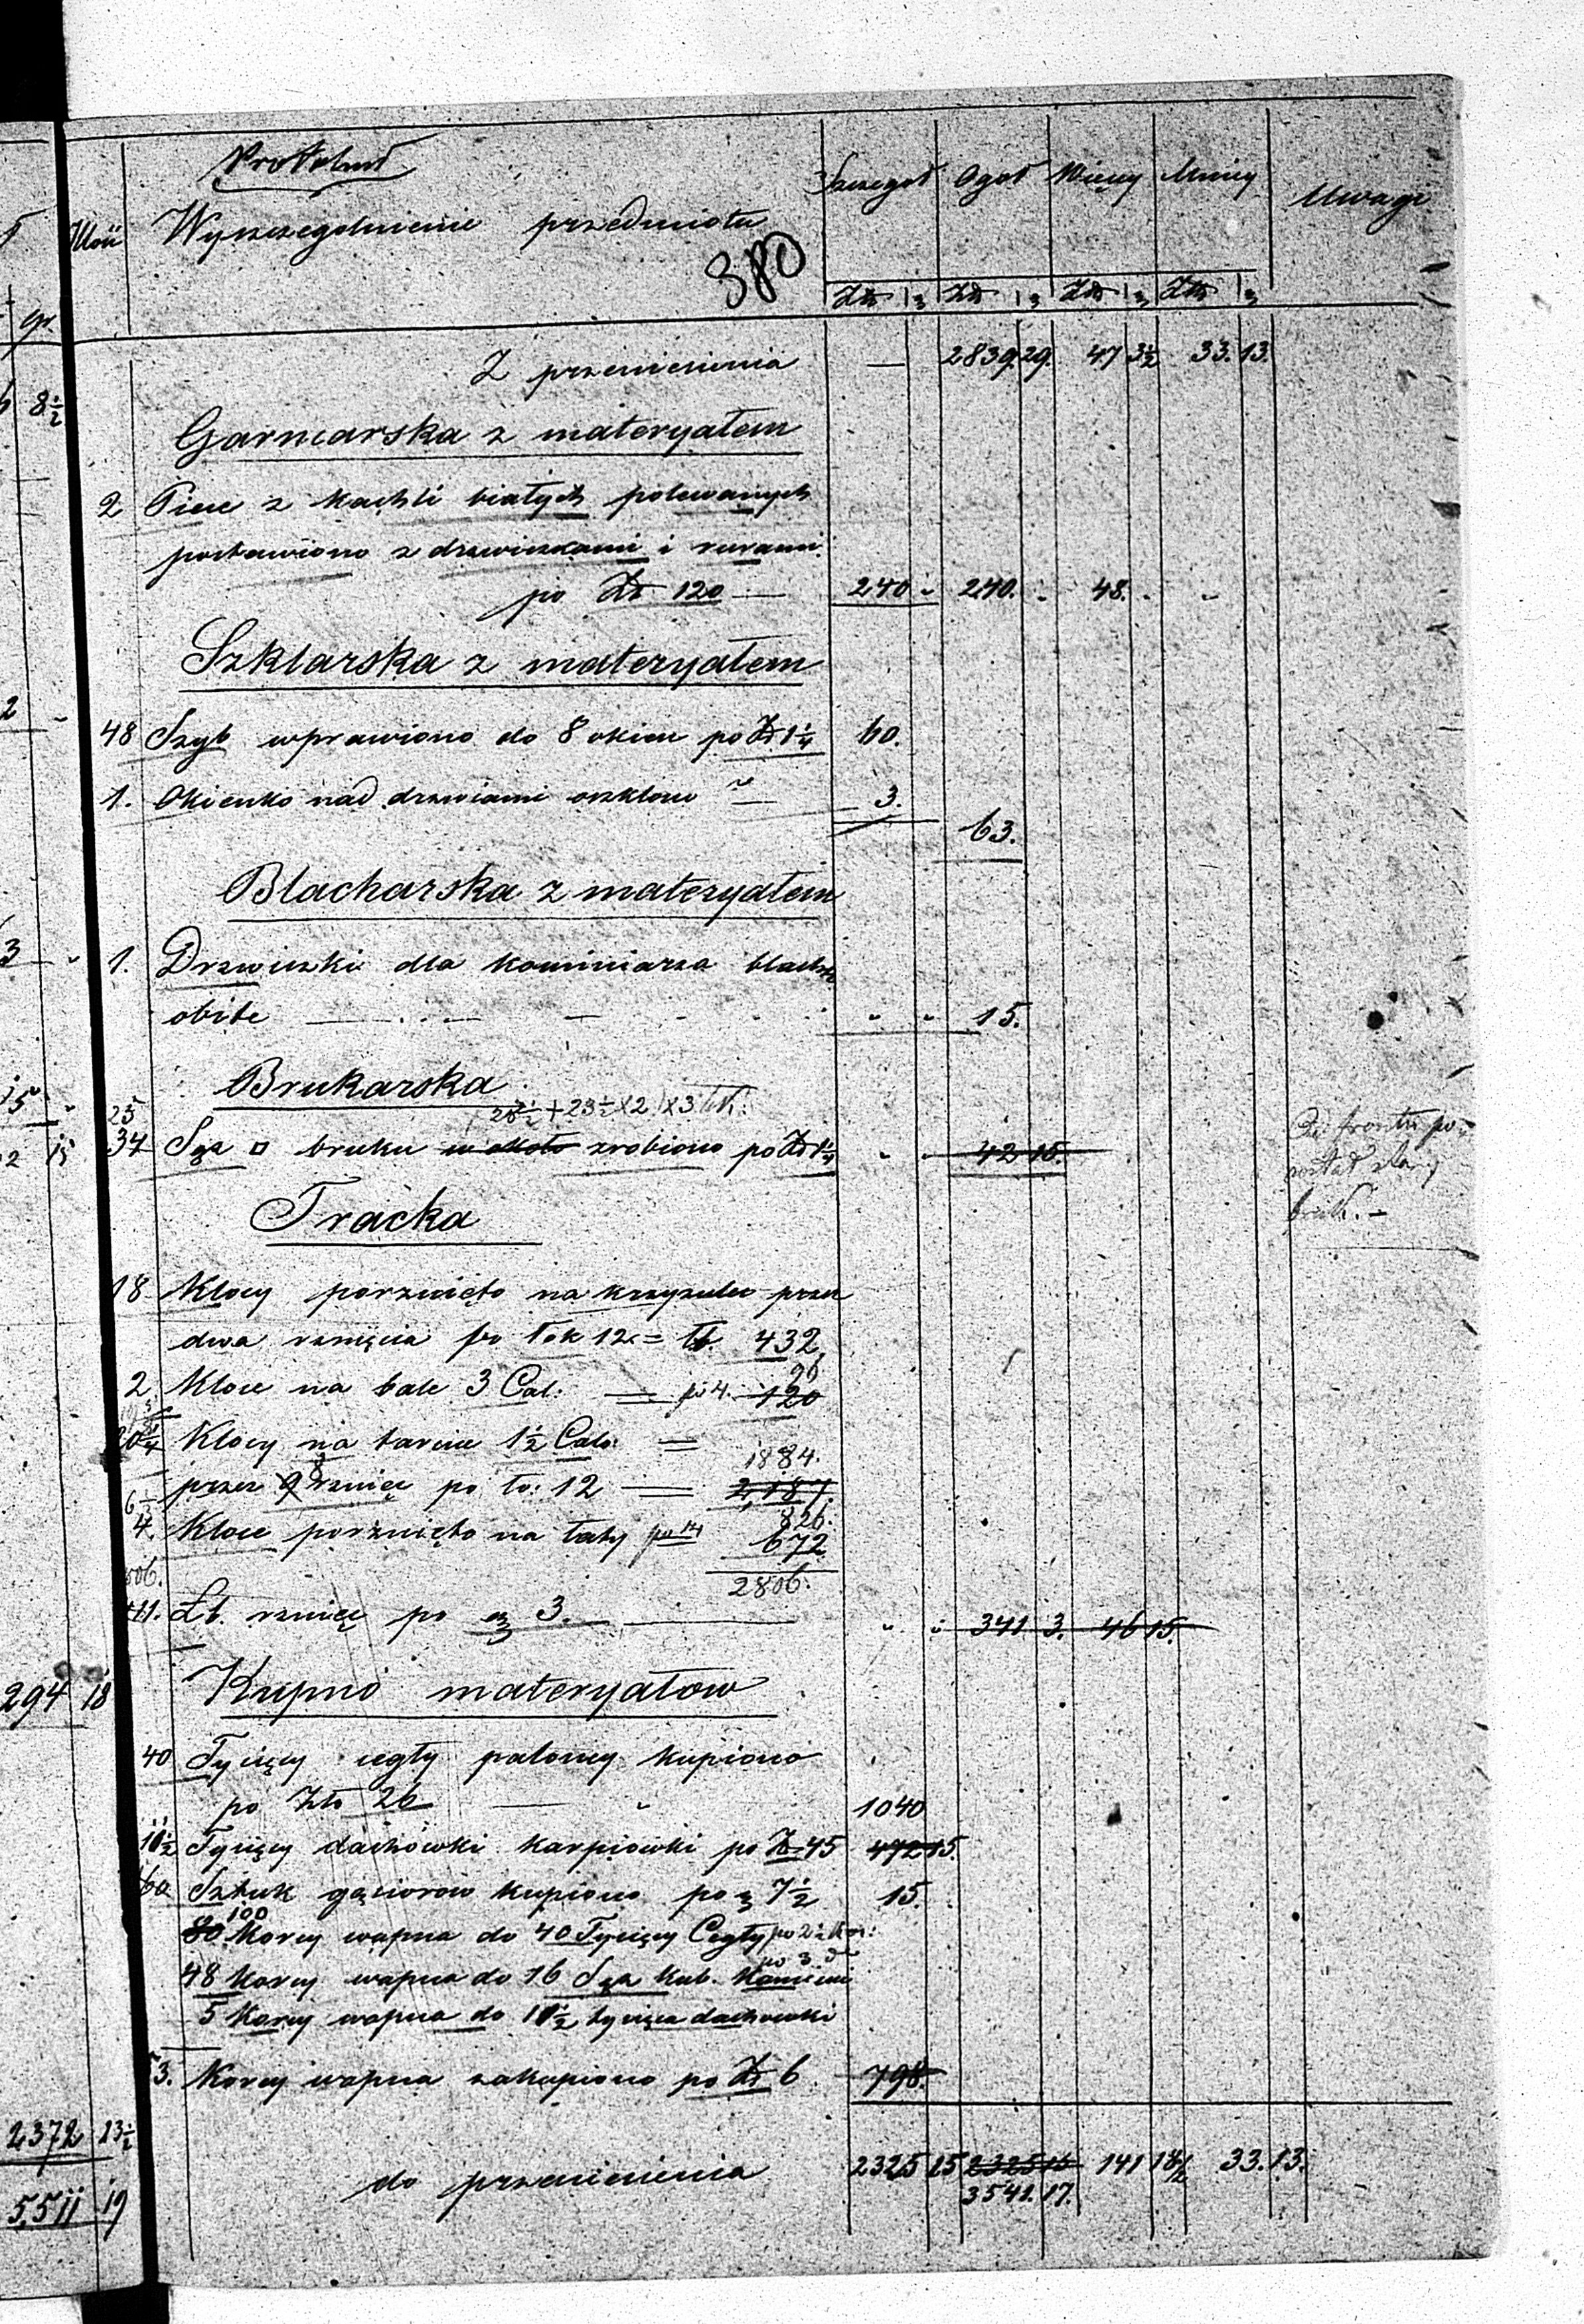 Protokuł
Ilość Wyszczegolnienie przedmiotu Szczegoł Ogoł Więcy Mniey Uwagi
380
Zł g Zł g Zł g Zł g
gr
Z przeniesienia — 2839. 29. 47 3½ 33. 13.
8½
Garncarska z materyałem
2 Piece z kachli białych polewanych
postawiono z drzwiczkami i rurami
po Zł 120 — 240 „ 240. „ 48. „ „
Szklarska z materyałem
48 Szyb wprawiono do 8 okien po Zł. 1¼ 60.
1. Okienko nad drzwiami oszklone — 3.
63.
Blacharska z materyałem
1. Drzwiczki dla kominiarza blachą
obite — „ „ 15.
Brukarska
28½ + 23½ x 2 x 3
25
34 Sąż □ bruku w około zrobiono po Zł 1¼ „ „ 42 15.
Od frontu po-
został stary
bruk. –
Tracka
18 Klocy porznięto na krzyzulce przez
dwa rznięcia po łok 12 = łb. 432
2 Kloce na bale 3 Cal: — po 4. 96
120
20¼ Klocy na tarcice 1½ Calo: —
1884.
przez 9 8 rznięć po ło: 12 — 2,187.
6½
4. Kloce porznięto na łaty po 14 826.
672
2806.
Łb. rznięć po g 3. — „ „ 341 3. 46 15.
294 18
Kupno materyałow
40 Tysięcy cegły paloney kupiono
po Zło 26 — „ 1040
10½ Tysięcy dachówki karpiowki po Zł 45 472 15.
60 Sztuk gąsiorow kupiono po g 7½ 15.
100
80 Korcy wapna do 40 Tysięcy Cegły po 2½ kor:
po 3
48 Korcy wapna do 16 Sąż kub. Kamieni
5 Korcy wapna do 10½ tysiąca dachowki
3. Korcy wapna zakupiono po Zł 6 798.
2372 13½
do przeniesienia 2325 15 2325 15 141 18½ 33. 13.
3541. 17.
5511 19